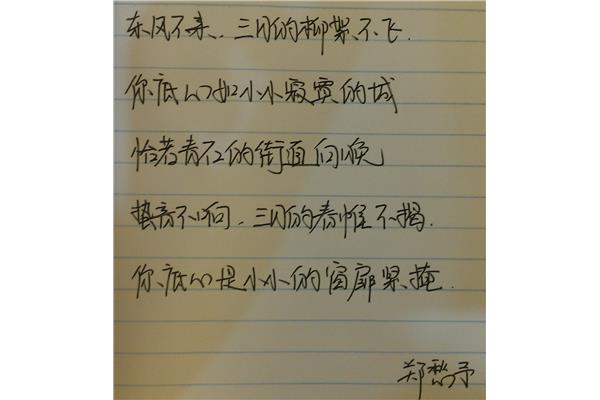 东风不来、三月的柳絮不飞.
你底心如小小寂寞的城
恰若青石的街面向晚
跫音不响、三月的春帷不揭.
你底心是小小的窗扉紧掩.
郑愁予